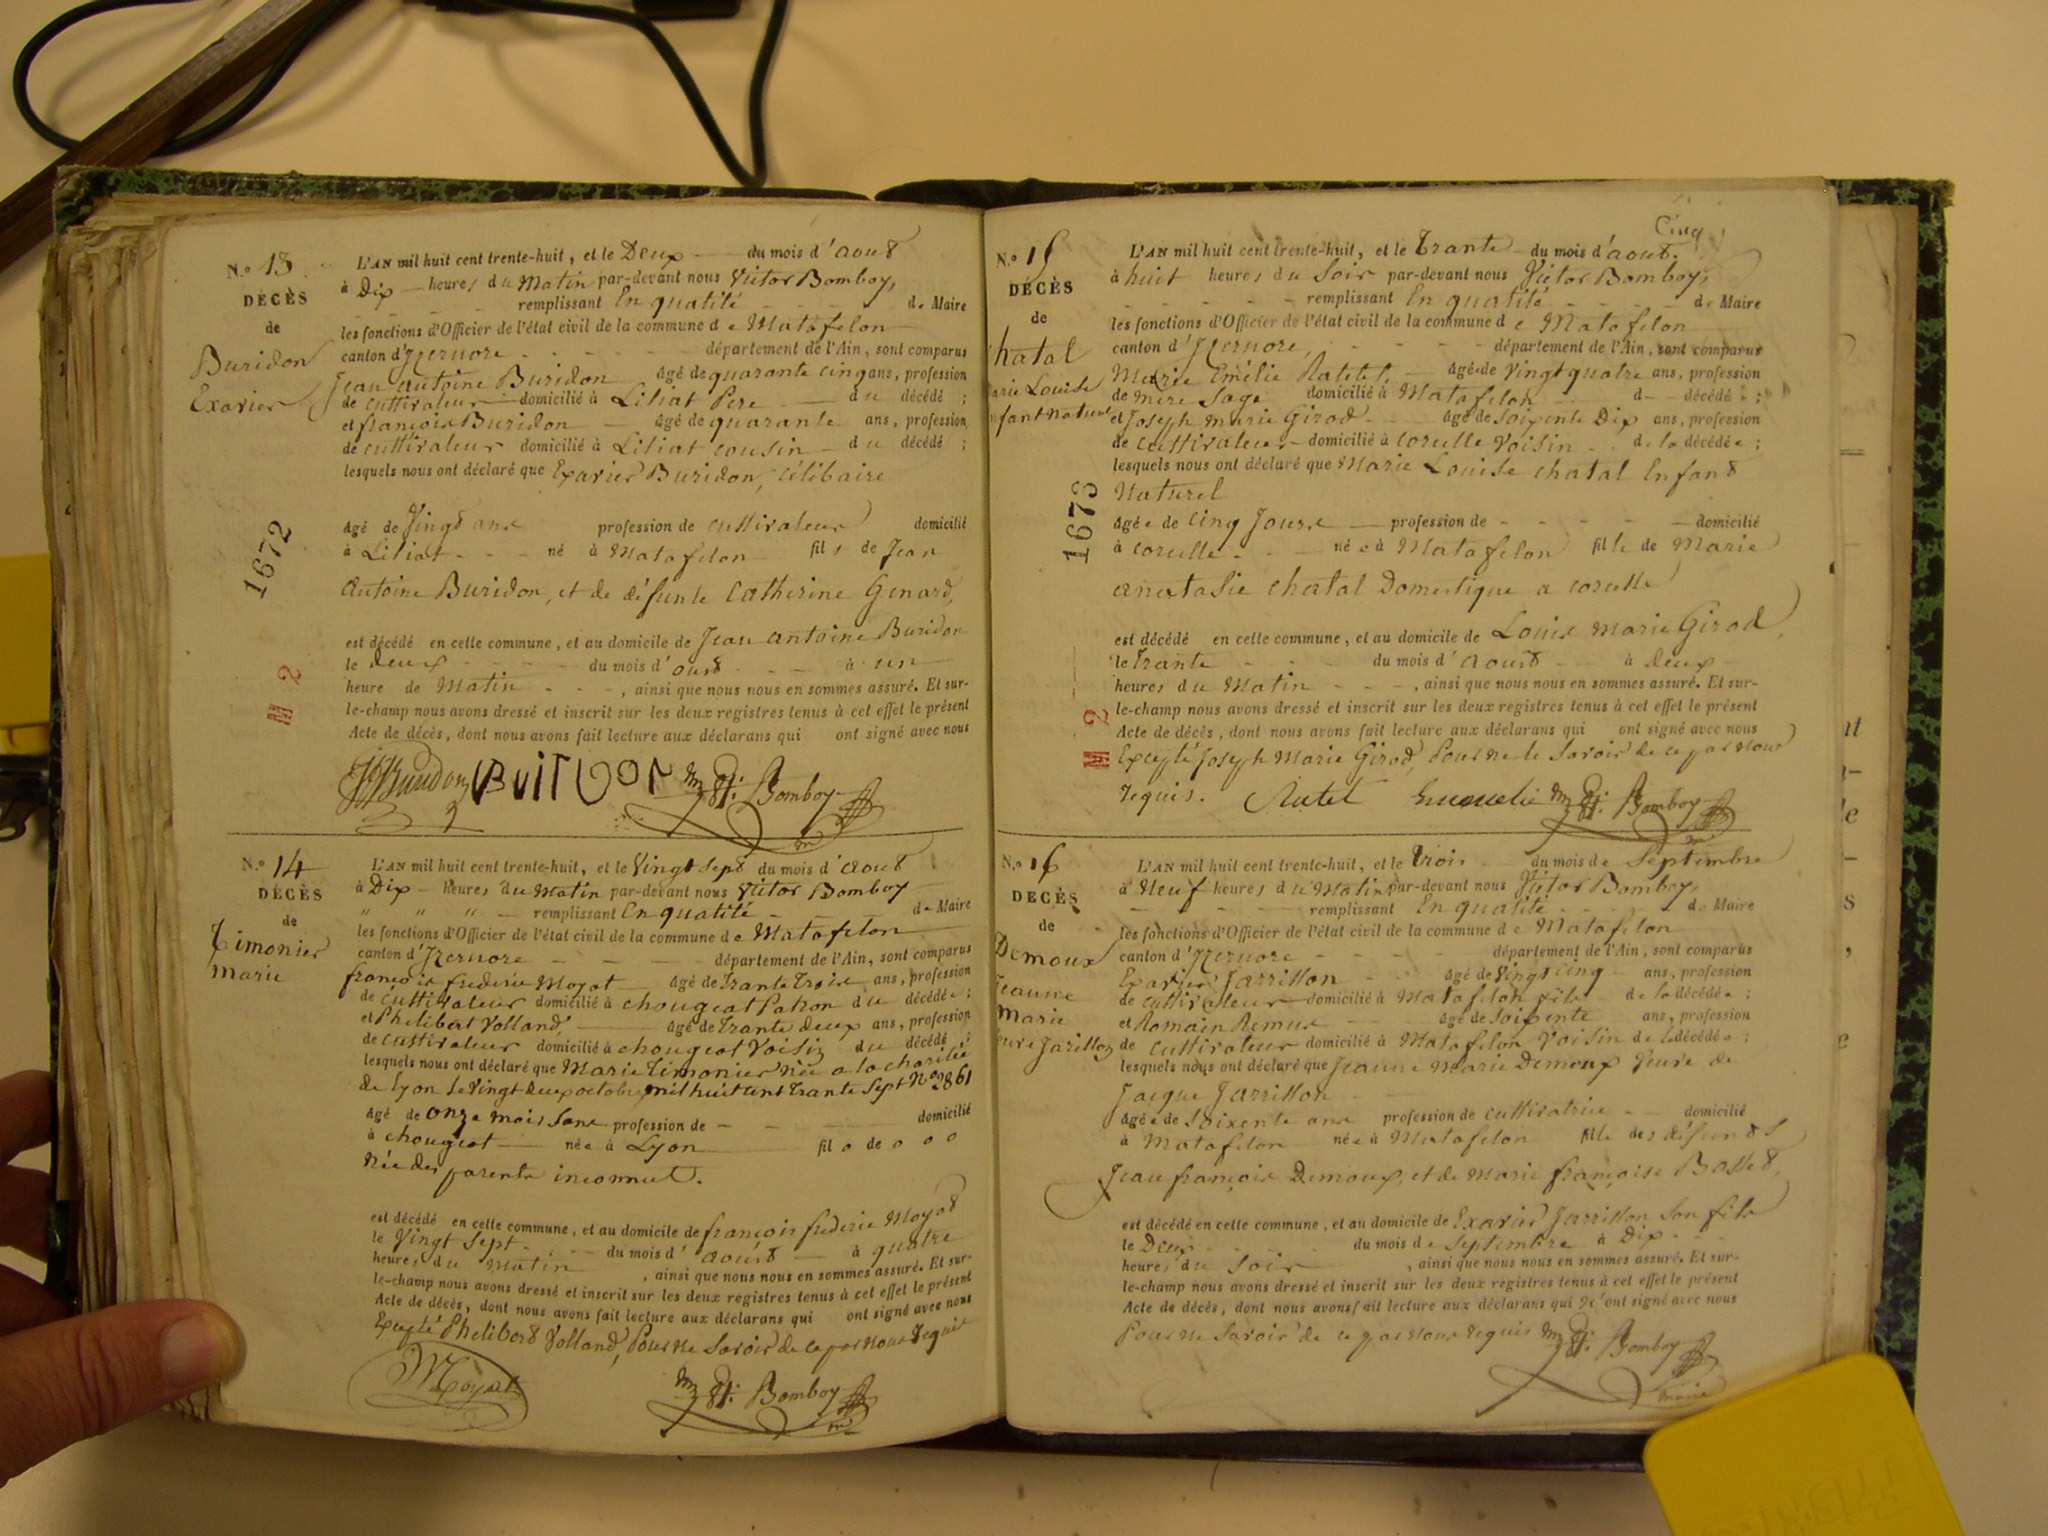 N.o 13
DÉCÈS
de
Buridon
Exavier
1672
M 2
L'AN mil huit cent trente-huit, et le Deux du mois d'aout
à Dix heures du Matin par-devant nous Victor Bomboy,
remplissant En qualité de Maire
les fonctions d'Officier de l'état civil de la commune de Matafelon
canton d'Izernore département de l'Ain, sont comparus
Jean antoine Buridon âgé de quarante cinq ans, profession
de cultivateur domicilié à Liliat Pere du décédé ;
et françois Buridon âgé de quarante ans, profession
de cultivateur domicilié à Liliat cousin du décédé ;
lesquels nous ont déclaré que Exavier Buridon, célibaire
Agé de Vingt ans profession de cultivateur domicilié
à Liliat né à Matafelon fils de Jean
Antoine Buridon, et de défunte Catherine Genard,
est décédé en cette commune, et au domicile de Jean antoine Buridon
le deux du mois d'out à un
heure de Matin, ainsi que nous nous en sommes assuré. Et sur-
le-champ nous avons dressé et inscrit sur les deux registres tenus à cet effet le présent
Acte de décès, dont nous avons fait lecture aux déclarans qui ont signé avec nous
Buridon Bomboy
N.o 14
DÉCÈS
de
Timonier
Marie
L'AN mil huit cent trente-huit, et le Vingt sept du mois d'aout
à Dix heures du Matin par-devant nous Victor Bomboy
" " " remplissant En qualité de Maire
les fonctions d'Officier de l'état civil de la commune de Matafelon
canton d'Izernore département de l'Ain, sont comparus
françois frederic Moyat âgé de Trante Trois ans, profession
de cultivateur domicilié à chougeat Patron du décédée ;
et Phelibert Volland, âgé de Trante deux ans, profession
de cultivateur domicilié à chougeat Voisin du décédé ;
lesquels nous ont déclaré que Marie Timonier née a la charitée
de Lyon le vingt deux octobre mil huit cent Trante Sept No 2861
Agé de onze mois sans profession de domicilié
à chougeat née à Lyon fil o de o o o
Née des parents inconnut.
est décédé en cette commune, et au domicile de françois frederic Moyat
le Vingt Sept du mois d'août à quatre
heures du Matin, ainsi que nous nous en sommes assuré. Et sur-
le-champ nous avons dressé et inscrit sur les deux registres tenus à cet effet le présent
Acte de décès, dont nous avons fait lecture aux déclarans qui ont signé avec nous
Excepté Phelibert Volland, Pour ne Savoir de ce par nous Requis
Moyat Bomboy
Cinq
N.o 15
DÉCÈS
de
hatal
arie Louise
nfant nature
1673
M 2
L'AN mil huit cent trente-huit, et le Trante du mois d'aout.
à huit heures du Soir par-devant nous Victor Bomboy,
remplissant En qualité de Maire
les fonctions d'Officier de l'état civil de la commune de Matafelon
canton d'Izernore, département de l'Ain, sont comparus
Marie Emélie Ratétet, âgée de Vingt quatre ans, profession
de mere Sage domicilié à Matafelon d décédé ;
et Joseph Marie Girod âgé de Soixente Dix ans, profession
de cultivateur domicilié à corcelle Voisin de la décédée ;
lesquels nous ont déclaré que Marie Louise chatal Enfant
Naturel
Agée de Cinq Jours profession de domicilié
à corcelle née à Matafelon fille de Marie
anatasie chatal Domestique a corcelle
est décédé en cette commune, et au domicile de Louis Marie Girod,
le Trante du mois d'août à deux
heures du Matin, ainsi que nous nous en sommes assuré. Et sur-
le-champ nous avons dressé et inscrit sur les deux registres tenus à cet effet le présent
Acte de décès, dont nous avons fait lecture aux déclarans qui ont signé avec nous
Excepté Joseph Marie Girod, Pour ne le Savoir de ce par nous
requis. Bomboy
N.o 16
DÉCÈS
de
Demoux
Jeanne
Marie
Jarillon
L'AN mil huit cent trente-huit, et le Trois du mois de Septembre
à Neuf heures du Matin par-devant nous Victor Bomboy,
remplissant En qualité de Maire
les fonctions d'Officier de l'état civil de la commune de Matafelon
canton d'Izernore département de l'Ain, sont comparus
Exavier Jarrillon âgé de Vingt cinq ans, profession
de cultivateur domicilié à Matafelon fils de la décédée ;
et Romain Remus âgé de Soixente ans, profession
de cultivateur domicilié à Matafelon Voisin de la décédée ;
lesquels nous ont déclaré que Jeanne Marie Demoux Veuve de
Jacque Jarrillon
Agée de Soixente ans profession de cultivatrice domicilié
à Matafelon née à Matafelon fille des défunts
Jean françois Demoux, et de Marie françoise Bosset,
est décédé en cette commune, et au domicile de Exavier Jarrillon Son fils
le Deux du mois de Septembre à Dix
heures du Soir, ainsi que nous nous en sommes assuré. Et sur-
le-champ nous avons dressé et inscrit sur les deux registres tenus à cet effet le présent
Acte de décès, dont nous avons fait lecture aux déclarans qui N'ont signé avec nous
Pour ne Savoir de ce par nous requis Bomboy
maire